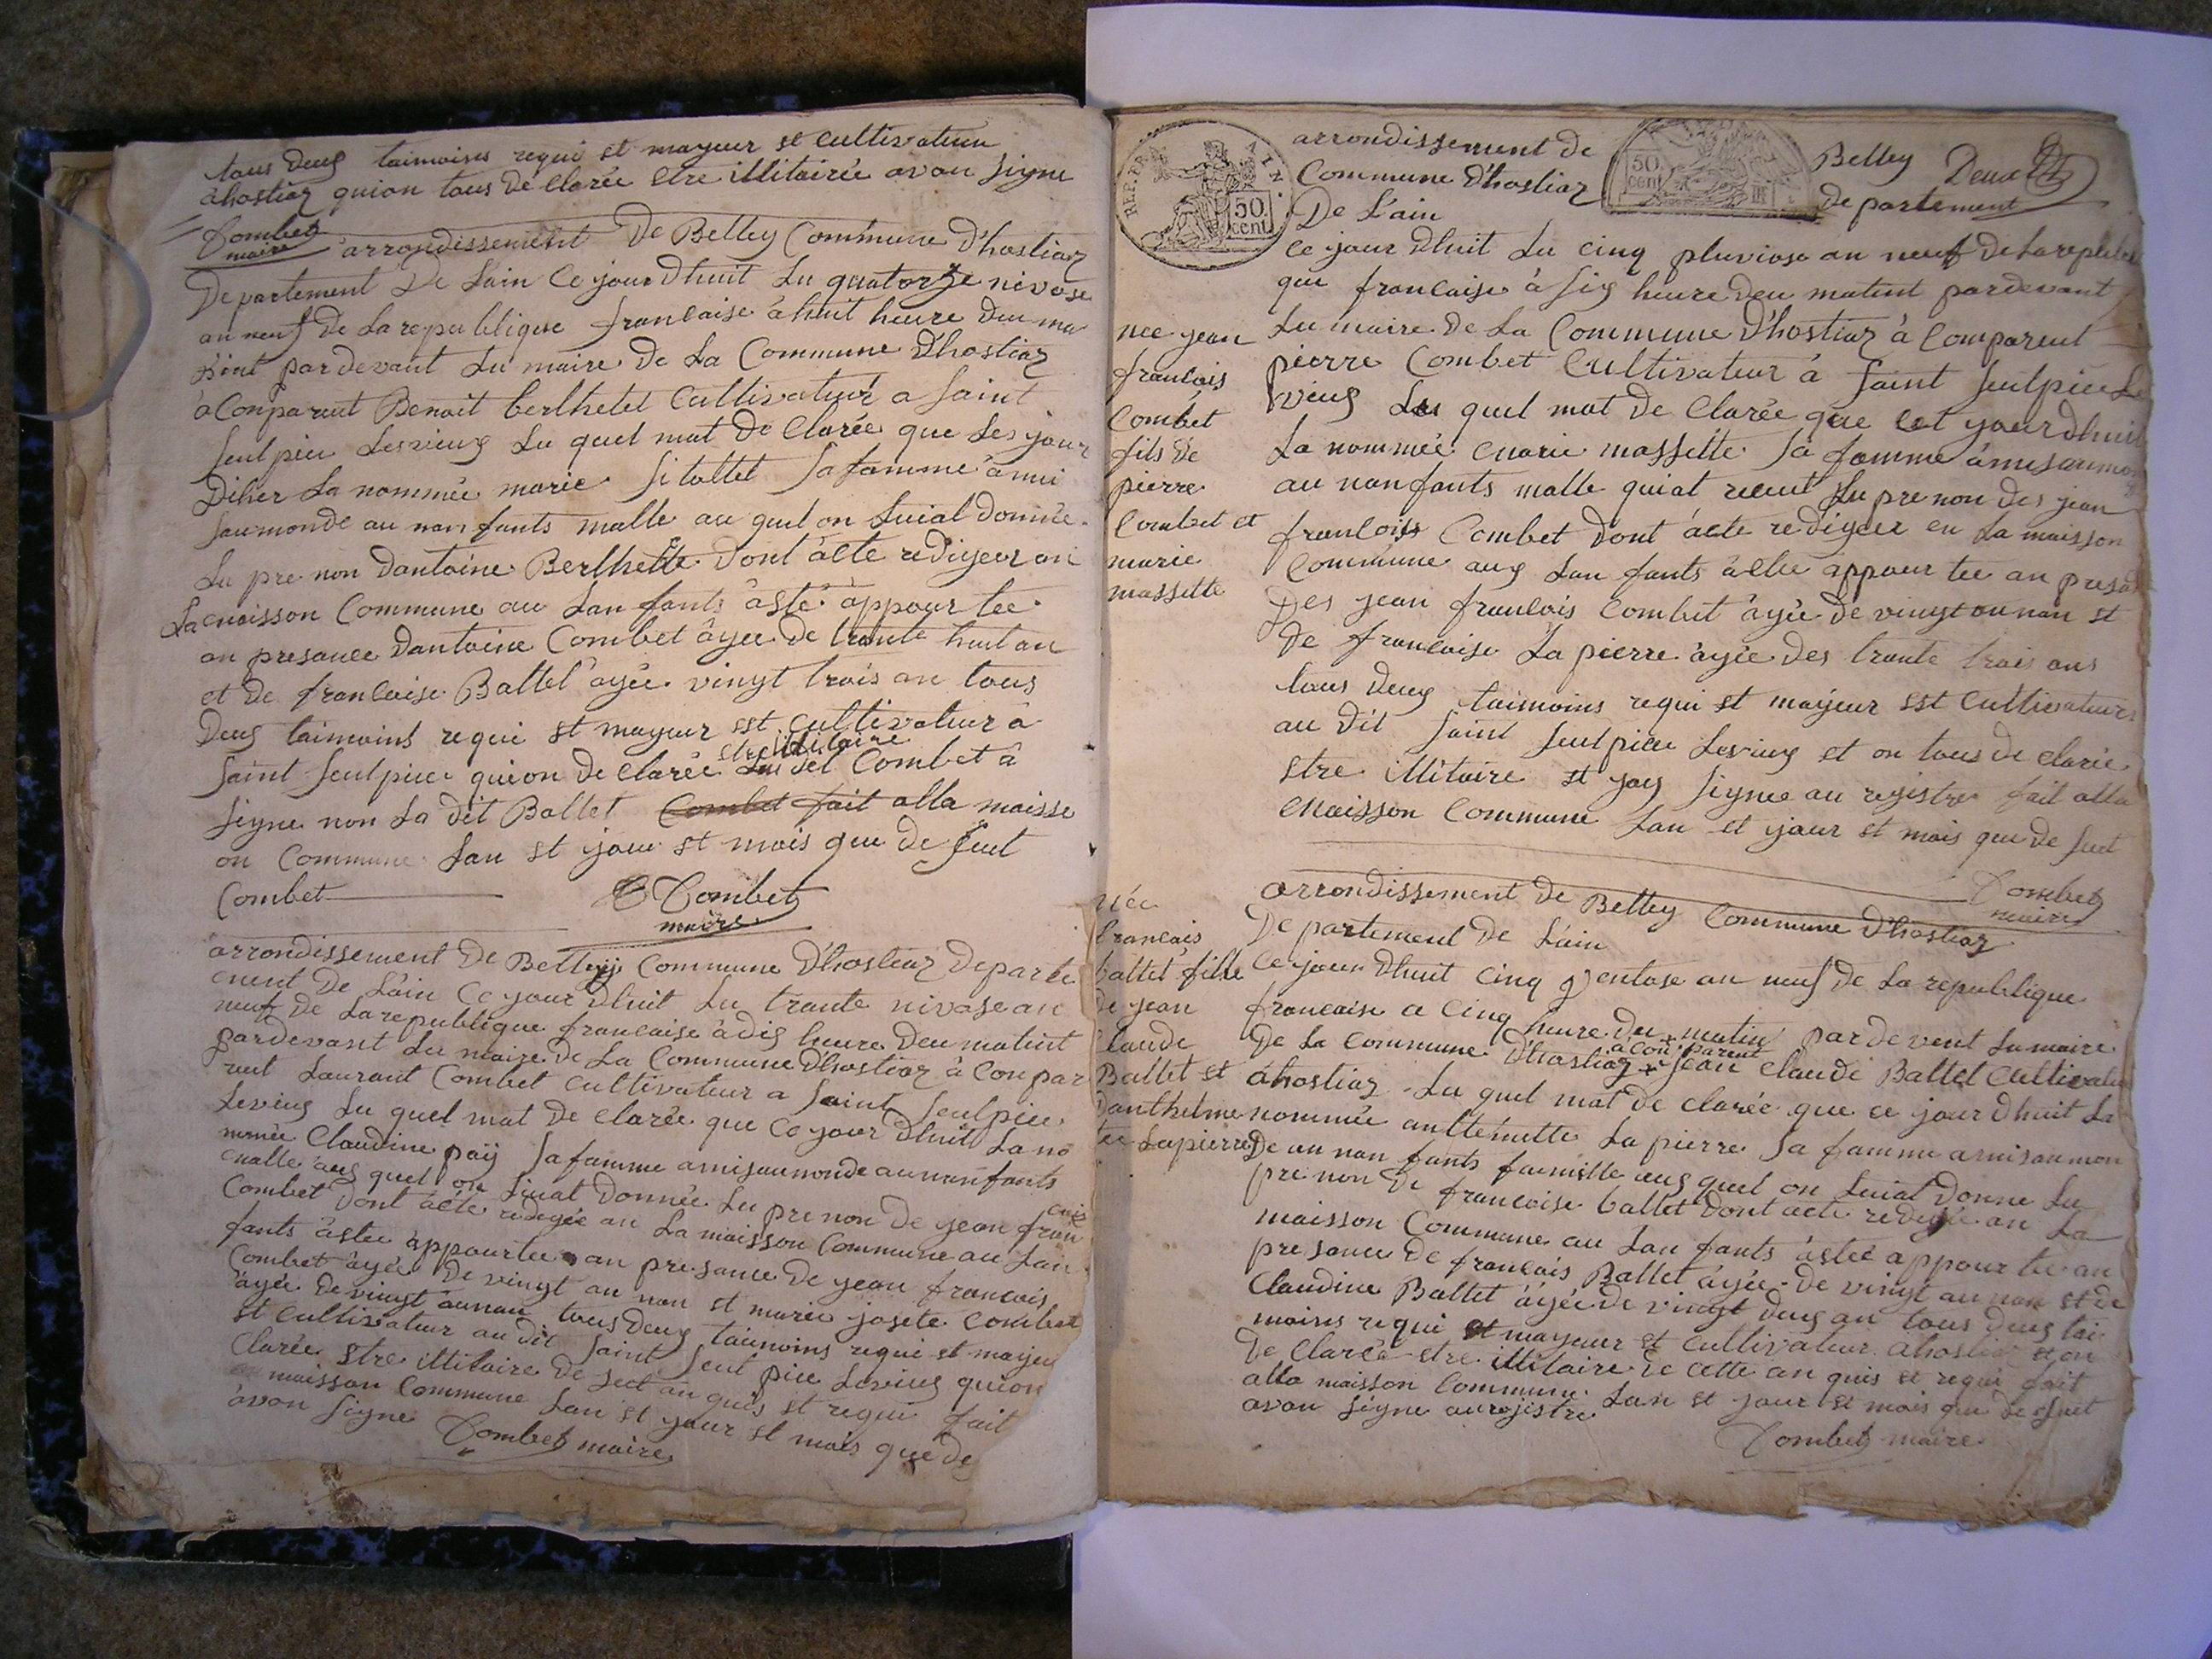 tous deux taimoins requi et mayeur et cultivateur
à hostiaz quion tous de Clarée etre illitairée avon signe
Combet
maire
arrondissement De Belley Commune D'hostiaz
Departement De Lain Ce jour Dhuit Lu quatorze nivose
an neuf De La republique francaise à huit heure Deu ma
par devant Lu maire De La Commune D'hostiaz
à Conparent Benoit berthelet Cultivateur a Saint
Seulpieu Levieux Lu quel mat De Clarée que Les jour
Dihier La nommée marie Sitollet Sa famme à mi
Saumonde au nanfants malle au quel on Luiat Donnée
Lu pre non Dantoine Berthette Dont àcte redigeer an
La maisson Commune au Lan fants àsté àppour tee
an presance Dantoine Combet àyée De trante huit an
et de francaise Ballet àyée vingt trois an tous
Deux taimoins requi et mayeur est Cultivateur à
etre illitaire
Saint Seulpiee quion de Clarée Combet à
signe non La dit Ballet Combet fait alla maisse
on Commune Lan et jour et mois que de Seut
Combet Combet
maire
arrondissement De Belley Commune D'hostiaz Departe
ment De L'ain Ce jour Dhuit Lu trante nivose an
neuf De La republique francaise à dix heure Deu matint
par devant Lu maire De La Commune D'hostiaz à Conpar
rent Laurant Combet Cultivateur a Saint Seulpiee
Levieux Lu quel mat De Clarée que Ce jour Dhuit La no
mmée Claudine pay Sa famme a mijaumonde au nanfants
malle aux quel on Luiat Donnée Lu pre non De jean fran
cois
Combet Dont àcte redigée an La maisson Commune au Lan
fants àstee àppourtee an presance De jean francois
Combet àyée De vingt an nan et marie josete Combet
àyée De vingt àunan tous Deux taimoins requi et mayeu
et Cultivateur au Dit Saint Seulpiee Levieux quion
Clarée etre illitaire De Sect an quis et requi fait
maisson Commune Lan et jour et mois que De
avon Signe
Combet maire
REP. FRA. 50. cent.
50. cent
arrondissement de Belley Deux
Commune D'hostiaz Departement
De L'ain
Ce jour Dhuit Lu cinq pluviose an neuf De La republi
que francaise à six heure Deu matint pardevant
Lu maire De La Commune D'hostiaz à Comparent
pierre Combet Cultivateur à Saint Seulpiee Le
vieux Lu quel mat De Clarée que Cet yourdhuit
La nommée marie massette Sa famme à misaumon
au nanfants malle quiat reeut Lu pre non Des jean
francois Combet Dont àcte redigeer en La maisson
Commune aux Lan fants à appour tee an presa
Des jean francois Combet àyée De vingt au nan et
De francaise La pierre àyée Des trante trois ans
tous Deux taimoins requi et mayeur est Cultivateurs
au Dit Saint Seulpiee Levieux et on tous de Clarée
etre illitaire et jay Signee au registre fait alla
maisson Commune Lan et yaur et mois que De Seut
Combet
maire
nee jean
francois
Combet
fils De
pierre
Combet et
marie
massette
arrondissement De Belley Commune D'hostiaz
Departement De L'ain
Ce jour Dhuit Cinq ventose an neuf De La republique
francaise a Cinq heure Du matin par de vent Lu maire
à Conparent
De La Commune D'hostiaz + jean Claude Ballet Cultivateu
à hostiaz Lu quel mat De Clarée que ce jour Dhuit La
nommée La pierre Sa famme a misaumon
De au nan fants faimille aux quel on Luiat Donne Lu
pre non De francoise ballet Dont acte redigée an La
maisson Commune au Lan fants àstée a ppour tee an
presance De francois Ballet àyée De vingt au nan et De
Claudine Ballet àyée De vingt Deux an tous Deux tai
moins requi et mayeur et Cultivateur à hostiaz et on
De Clarée etre illitaire De Cette an quis et requi fait
alla maisson Commune Lan et jour et mois que De Seut
avon Signe au rejistre
Combet maire
née
francais
ballet fille
De jean
Claude
Ballet et
Danthelme
te Lapierre